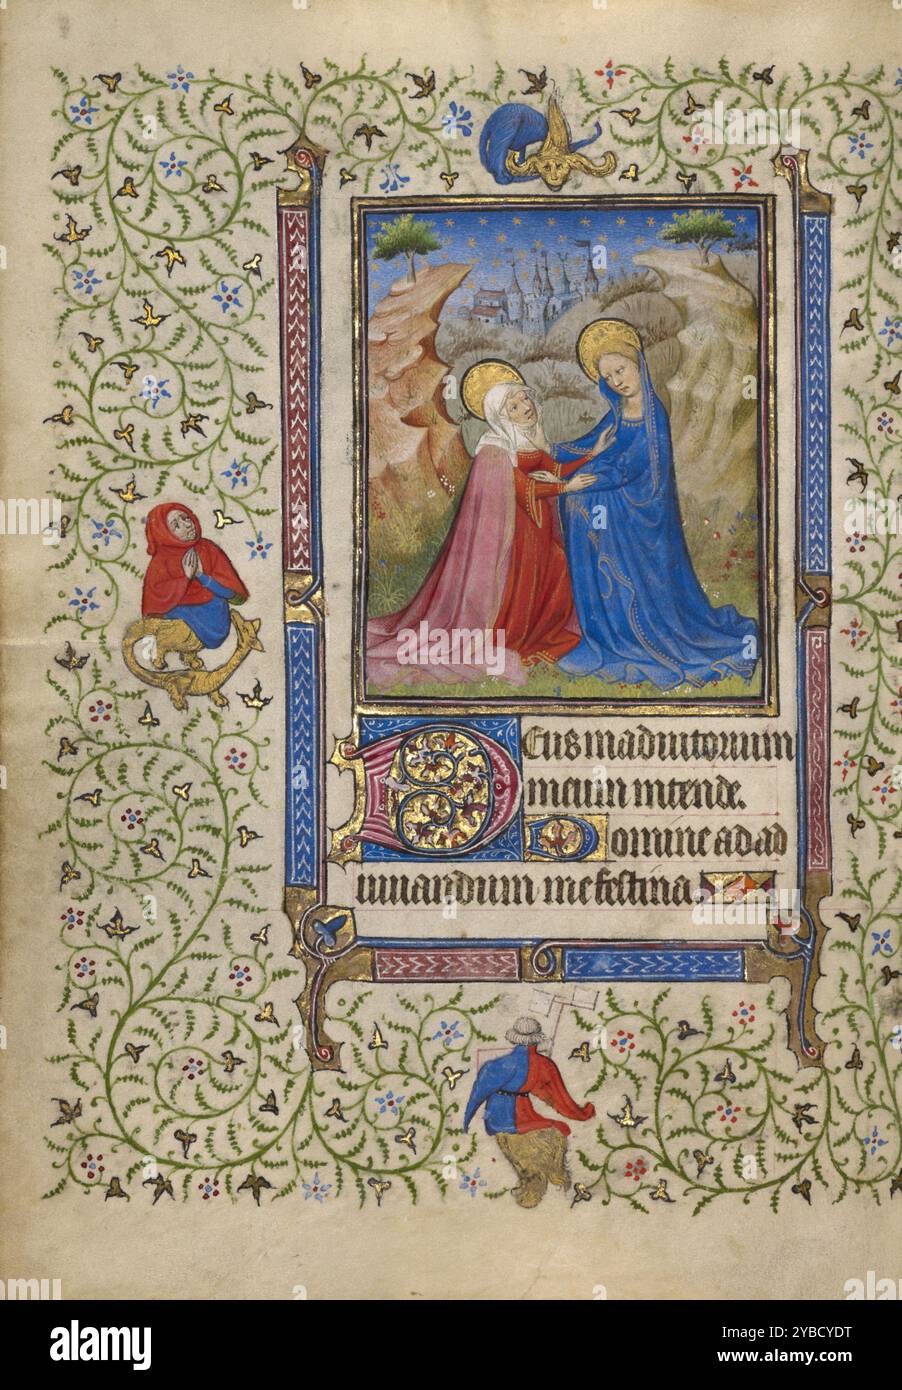 Deus in adiutorium
meum intende.
Domine ad ad
iuuandum me festina.
alamy
Image ID: 2YBCYDT
www.alamy.com